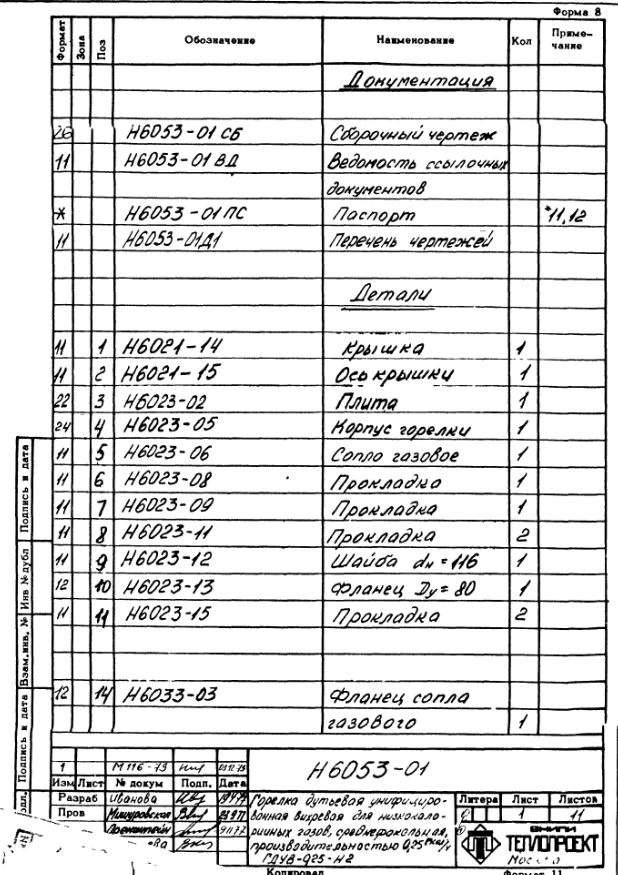 Форма 8
Формат Зона Поз Обозначение Наименование Кол Приме-
чание
Документация
26 Н6053-01 СБ Сборочный чертеж
11 Н6053-01 ВД Ведомость ссылочных
документов
* Н6053-01 ПС Паспорт *11,12
11 Н6053-01Д1 Перечень чертежей
Детали
11 1 Н6021-14 Крышка 1
11 2 Н6021-15 Ось крышки 1
22 3 Н6023-02 Плита 1
24 4 Н6023-05 Корпус горелки 1
11 5 Н6023-06 Сопло газовое 1
11 6 Н6023-08 Прокладка 1
11 7 Н6023-09 Прокладка 1
11 8 Н6023-11 Прокладка 2
11 9 Н6023-12 Шайба dн=116 1
12 10 Н6023-13 Фланец Dу=80 1
11 11 Н6023-15 Прокладка 2
12 14 Н6033-03 Фланец сопла
газового 1
Подпись и дата
Инв № дубл
Взам.инв. №
Подпись и дата
подл.
1 М116-79
Изм Лист № докум Подп. Дата
Н6053-01
Разраб Иванова
Пров
Горелка дутьевая унифициро-
ванная вихревая для низкокало-
рийных газов,
производительностью 0,25
ГДУВ-025-Н2
Литера Лист Листов
1 11
ВНИПИ
ТЕПЛОПРОЕКТ
Москва
Копировал Формат 11